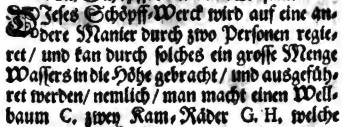 DIeses Schöpff-Werck wird auf eine an-
dere Manier durch zwo Personen regie-
ret / und kan durch solches ein grosse Menge
Wassers in die Höhe gebracht / und ausgefüh-
ret werden / nemlich / man macht einen Well-
baum C, zwey Kam-Räder G. H, welche